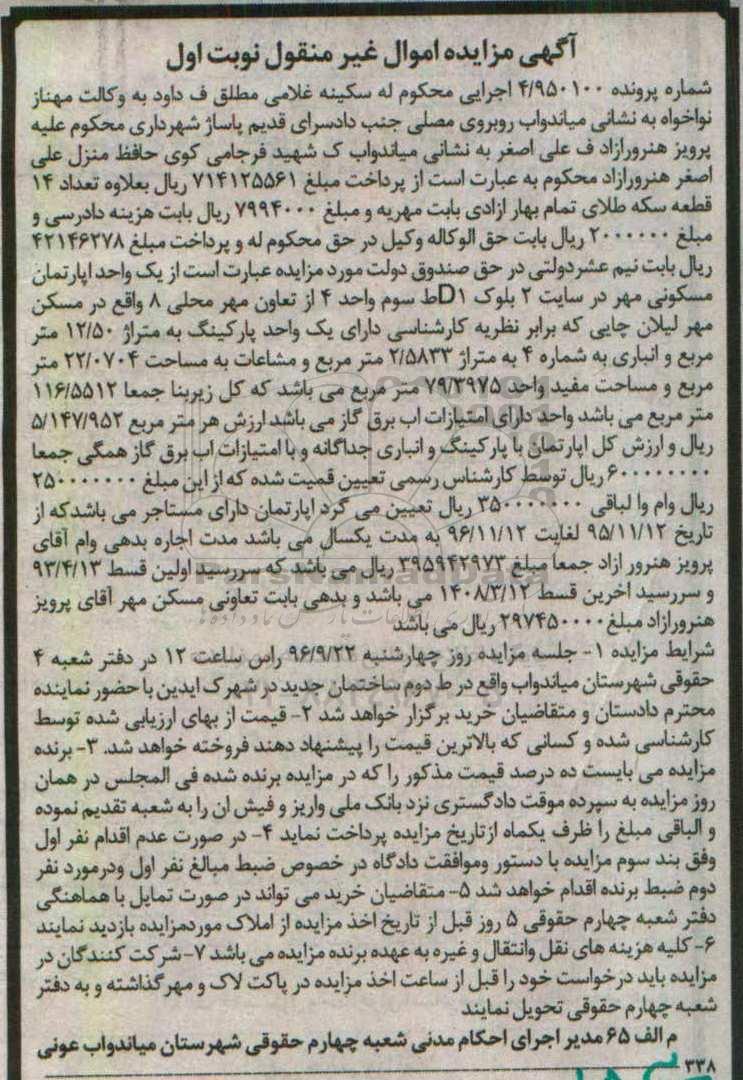 آگهی مزایده اموال غیر منقول نوبت اول
شماره پرونده ۴/۹۵۰۱۰۰ اجرایی محکوم له سکینه غلامی مطلق ف داود به وکالت مهناز
نواخواه به نشانی میاندواب روبروی مصلی جنب دادسرای قدیم پاساژ شهرداری محکوم علیه
پرویز هنرورازاد ف علی اصغر به نشانی میاندواب ک شهید فرجامی کوی حافظ منزل علی
اصغر هنرورازاد محکوم به عبارت است از پرداخت مبلغ ۷۱۴۱۲۵۵۶۱ ریال بعلاوه تعداد ۱۴
قطعه سکه طلای تمام بهار ازادی بابت مهریه و مبلغ ۷۹۹۴۰۰۰ ریال بابت هزینه دادرسی و
مبلغ ۲۰۰۰۰۰۰ ریال بابت حق الوکاله وکیل در حق محکوم له و پرداخت مبلغ ۴۲۱۴۶۲۷۸
ریال بابت نیم عشردولتی در حق صندوق دولت مورد مزایده عبارت است از یک واحد اپارتمان
مسکونی مهر در سایت ۲ بلوک D۱ط سوم واحد ۴ از تعاون مهر محلی ۸ واقع در مسکن
مهر لیلان چایی که برابر نظریه کارشناسی دارای یک واحد پارکینگ به متراژ ۱۲/۵۰ متر
مربع و انباری به شماره ۴ به متراژ ۲/۵۸۳۳ متر مربع و مشاعات به مساحت ۲۲/۰۷۰۴ متر
مربع و مساحت مفید واحد ۷۹/۳۹۷۵ متر مربع می باشد که کل زیربنا جمعا ۱۱۶/۵۵۱۲
متر مربع می باشد واحد دارای امتیازات اب برق گاز می باشد ارزش هر متر مربع ۵/۱۴۷/۹۵۲
ریال و ارزش کل اپارتمان با پارکینگ و انباری جداگانه و با امتیازات اب برق گاز همگی جمعا
۶۰۰۰۰۰۰۰۰ ریال توسط کارشناس رسمی تعیین قمیت شده که از این مبلغ ۲۵۰۰۰۰۰۰۰
ریال وام وا لباقی ۳۵۰۰۰۰۰۰۰ ریال تعیین می گرد اپارتمان دارای مستاجر می باشدکه از
تاریخ ۹۵/۱۱/۱۲ لغایت ۹۶/۱۱/۱۲ به مدت یکسال می باشد مدت اجاره بدهی وام آقای
پرویز هنرور ازاد جمعا مبلغ ۳۹۵۹۴۲۹۷۳ ریال می باشد که سررسید اولین قسط ۹۳/۴/۱۳
و سررسید اخرین قسط ۱۴۰۸/۳/۱۲ می باشد و بدهی بابت تعاونی مسکن مهر آقای پرویز
هنرورازاد مبلغ ۲۹۷۴۵۰۰۰۰ ریال می باشد
شرایط مزایده ۱- جلسه مزایده روز چهارشنبه ۹۶/۹/۲۲ راس ساعت ۱۲ در دفتر شعبه ۴
حقوقی شهرستان میاندواب واقع در ط دوم ساختمان جدید در شهرک ایدین با حضور نماینده
محترم دادستان و متقاضیان خرید برگزار خواهد شد ۲- قیمت از بهای ارزیابی شده توسط
کارشناسی شده و کسانی که بالاترین قیمت را پیشنهاد دهند فروخته خواهد شد. ۳- برنده
مزایده می بایست ده درصد قیمت مذکور را که در مزایده برنده شده فی المجلس در همان
روز مزایده به سپرده موقت دادگستری نزد بانک ملی واریز و فیش ان را به شعبه تقدیم نموده
و الباقی مبلغ را ظرف یکماه ازتاریخ مزایده پرداخت نماید ۴- در صورت عدم اقدام نفر اول
وفق بند سوم مزایده با دستور وموافقت دادگاه در خصوص ضبط مبالغ نفر اول ودرمورد نفر
دوم ضبط برنده اقدام خواهد شد ۵- متقاضیان خرید می تواند در صورت تمایل با هماهنگی
دفتر شعبه چهارم حقوقی ۵ روز قبل از تاریخ اخذ مزایده از املاک موردمزایده بازدید نمایند
۶- کلیه هزینه های نقل وانتقال و غیره به عهده برنده مزایده می باشد ۷- شرکت کنندگان در
مزایده باید درخواست خود را قبل از ساعت اخذ مزایده در پاکت لاک و مهر گذاشته و به دفتر
شعبه چهارم حقوقی تحویل نمایند
م الف ۶۵ مدیر اجرای احکام مدنی شعبه چهارم حقوقی شهرستان میاندواب عونی
۳۳۸
ParsNamadData